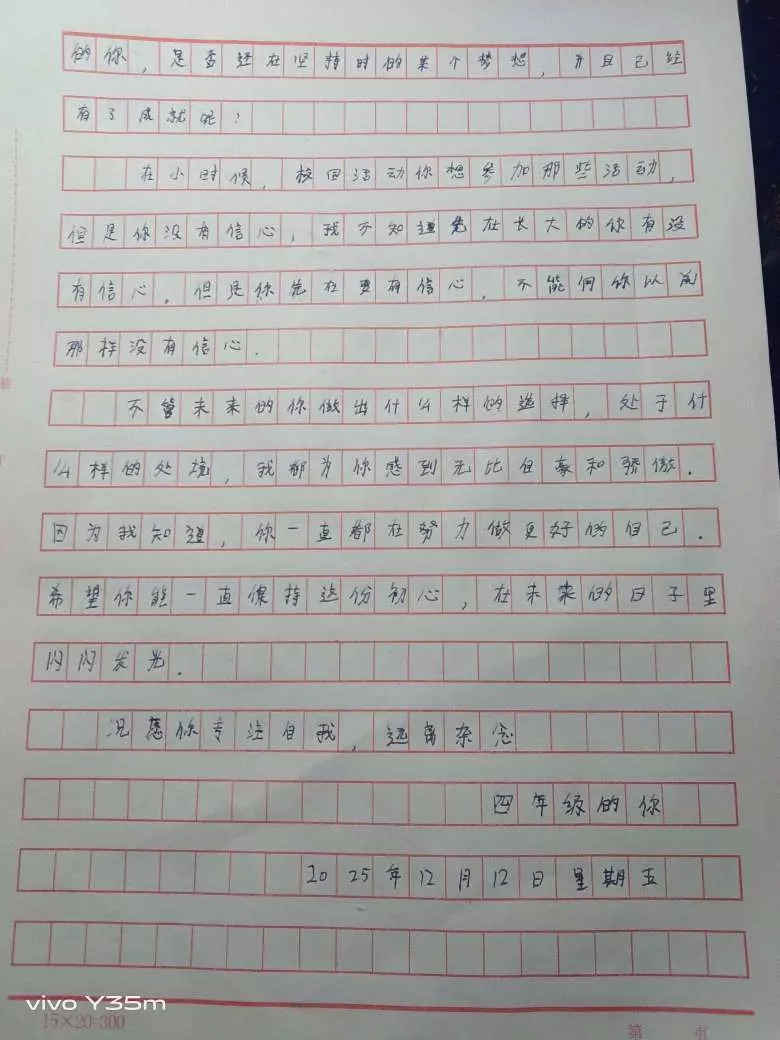 的你，是否还在坚持时的某个梦想，并且已经
有了成就呢！
在小时候，校园活动你想参加那些活动，
但是你没有信心，我不知道先在长大的你有没
有信心。但是你先在要有信心。不能向你以前
那样没有信心.
不管未来的你做出什么样的选择，处于什
么样的处境，我都为你感到无比自豪和骄傲.
因为我知道，你一直都在努力做更好的自己.
希望你能一直保持这份初心，在未来的日子里
闪闪发光.
况愿你专注自我，远离杂念
四年级的你
2025年12月12日星期五
vivo Y35m
15×20=300
第 页